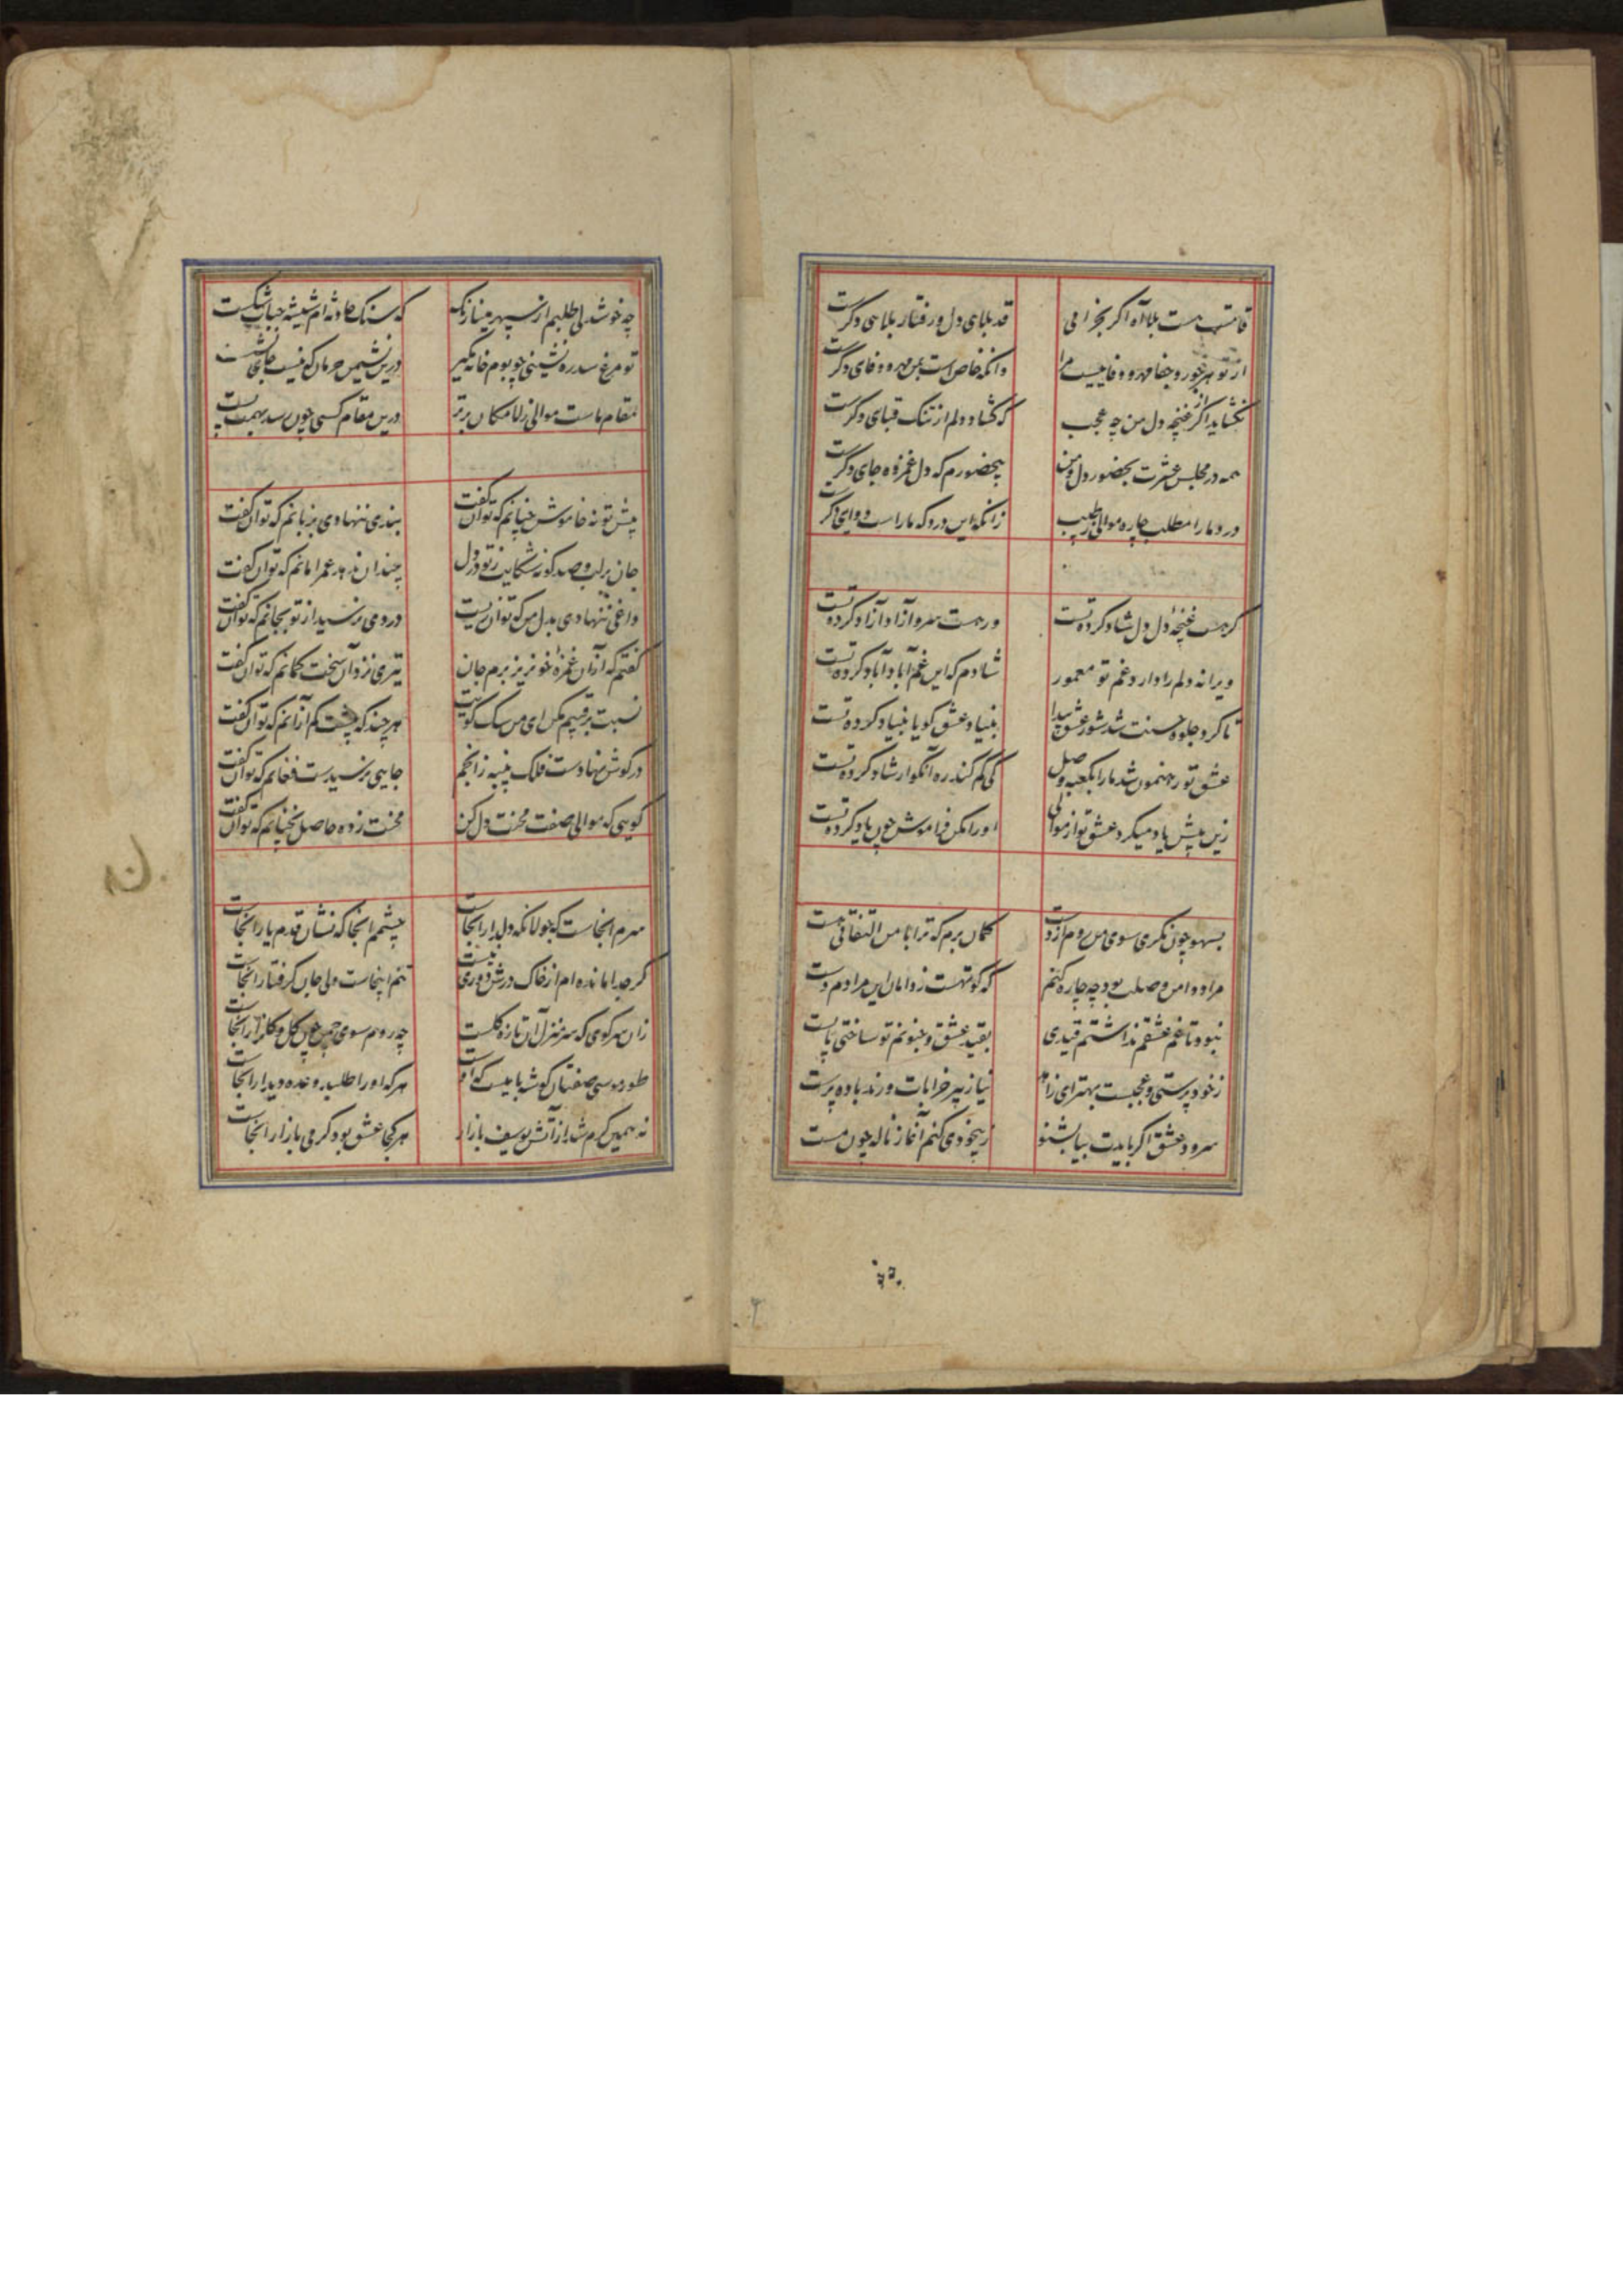 قامتت هست بلا آه اگر بخرامی قد بلای دل و رفتار بلای دگرست
از تو هر جور و جفا مهر و وفاییست مرا وانکه خاص است بمن مهر و وفای دگرست
نگشاید اگر از غنچه دل من چه عجب که گشاد دلم از تنک قبای دگرست
همه در مجلس عشرت بحضور دل و من بیحضورم که دل غمزده جای دگرست
درد ما را مطلب چاره موالی ز طبیب زانکه این درد که ماراست دوای دگرست
گر هست غنچهٔ دل دل شاد کرده تست ور هست سرو آزاد آزاد کرده تست
ویرانه دلم را دارد غم تو معمور شادم که این غم آباد آباد کرده تست
تا کرد جلوه حسنت شد شور عشق پیدا بنیاد عشق گویا بنیاد کرده تست
عشق تو رهنمون شد ما را بکعبه وصل کی گم کند ره آنکو ارشاد کرده تست
زین پیش یاد میکرد عشق تو از موالی او را مکن فراموش چون یاد کرده تست
بسهو چون نگری سوی من روم از دست گمان برم که ترا با من التفاتی هست
مراد دامن وصلت بود چه چاره کنم که کوتهست ز دامان این مرادم دست
نبود تا غم عشقم نداشتم قیدی بقید عشق و جنونم تو ساختی پابست
ز خودپرستی و عجبست بهتر ای زاهد نیاز پیر خرابات و رند باده پرست
سرود عشق اگر بایدت بیا بشنو ز بیخودی کنم آغاز ناله چون مست
چه خوشدلی طلبم از سپهر مینا رنگ که سنک حادثه ام شیشه حباب شکست
تو مرغ سدره نشینی چو بوم خانه مگیر درین نشیمن حرمان که نیست جای نشست
مقام ماست موالی ز لامکان برتر درین مقام کسی چون رسد بهمت پست
پیش تو نه خاموش چنانم که توان گفت بندی ننهادی بزبانم که توان گفت
جان بر لب و صد گونه شکایت ز تو در دل چندان ندهد عمر امانم که توان گفت
داغی ننهادی بدل من که توان زیست دردی نرسید از تو بجانم که توان گفت
گفتم که از آن غمزهٔ خونریز برم جان تیری نزد آن سخت کمانم که توان گفت
نسبت برقیبم مکن ای من سک کویت هر چند که هست کم از آنم که توان گفت
در گوش نهادست فلک پنبه ز انجم جایی نرسیدست فغانم که توان گفت
گویی که موالی صفت محنت دل کن محنت زده حاصل نچنانم که توان گفت
سرم آنجاست که جولانگه دلدار آنجاست چشمم آنجا که نشان قدم یار آنجاست
گر جدا مانده ام از خاک درش دوری نیست تنم اینجاست ولی جان گرفتار آنجاست
زان سر کوی که سر منزل آن تازه گلست چه روم سوی چمن چون گل و گلزار آنجاست
طور موسی صفتان گوشه بامیست که او هر که او را طلبد وعده دیدار آنجاست
نه همین گرم شد از آتش یوسف بازار هر کجا عشق بود گرمی بازار آنجاست